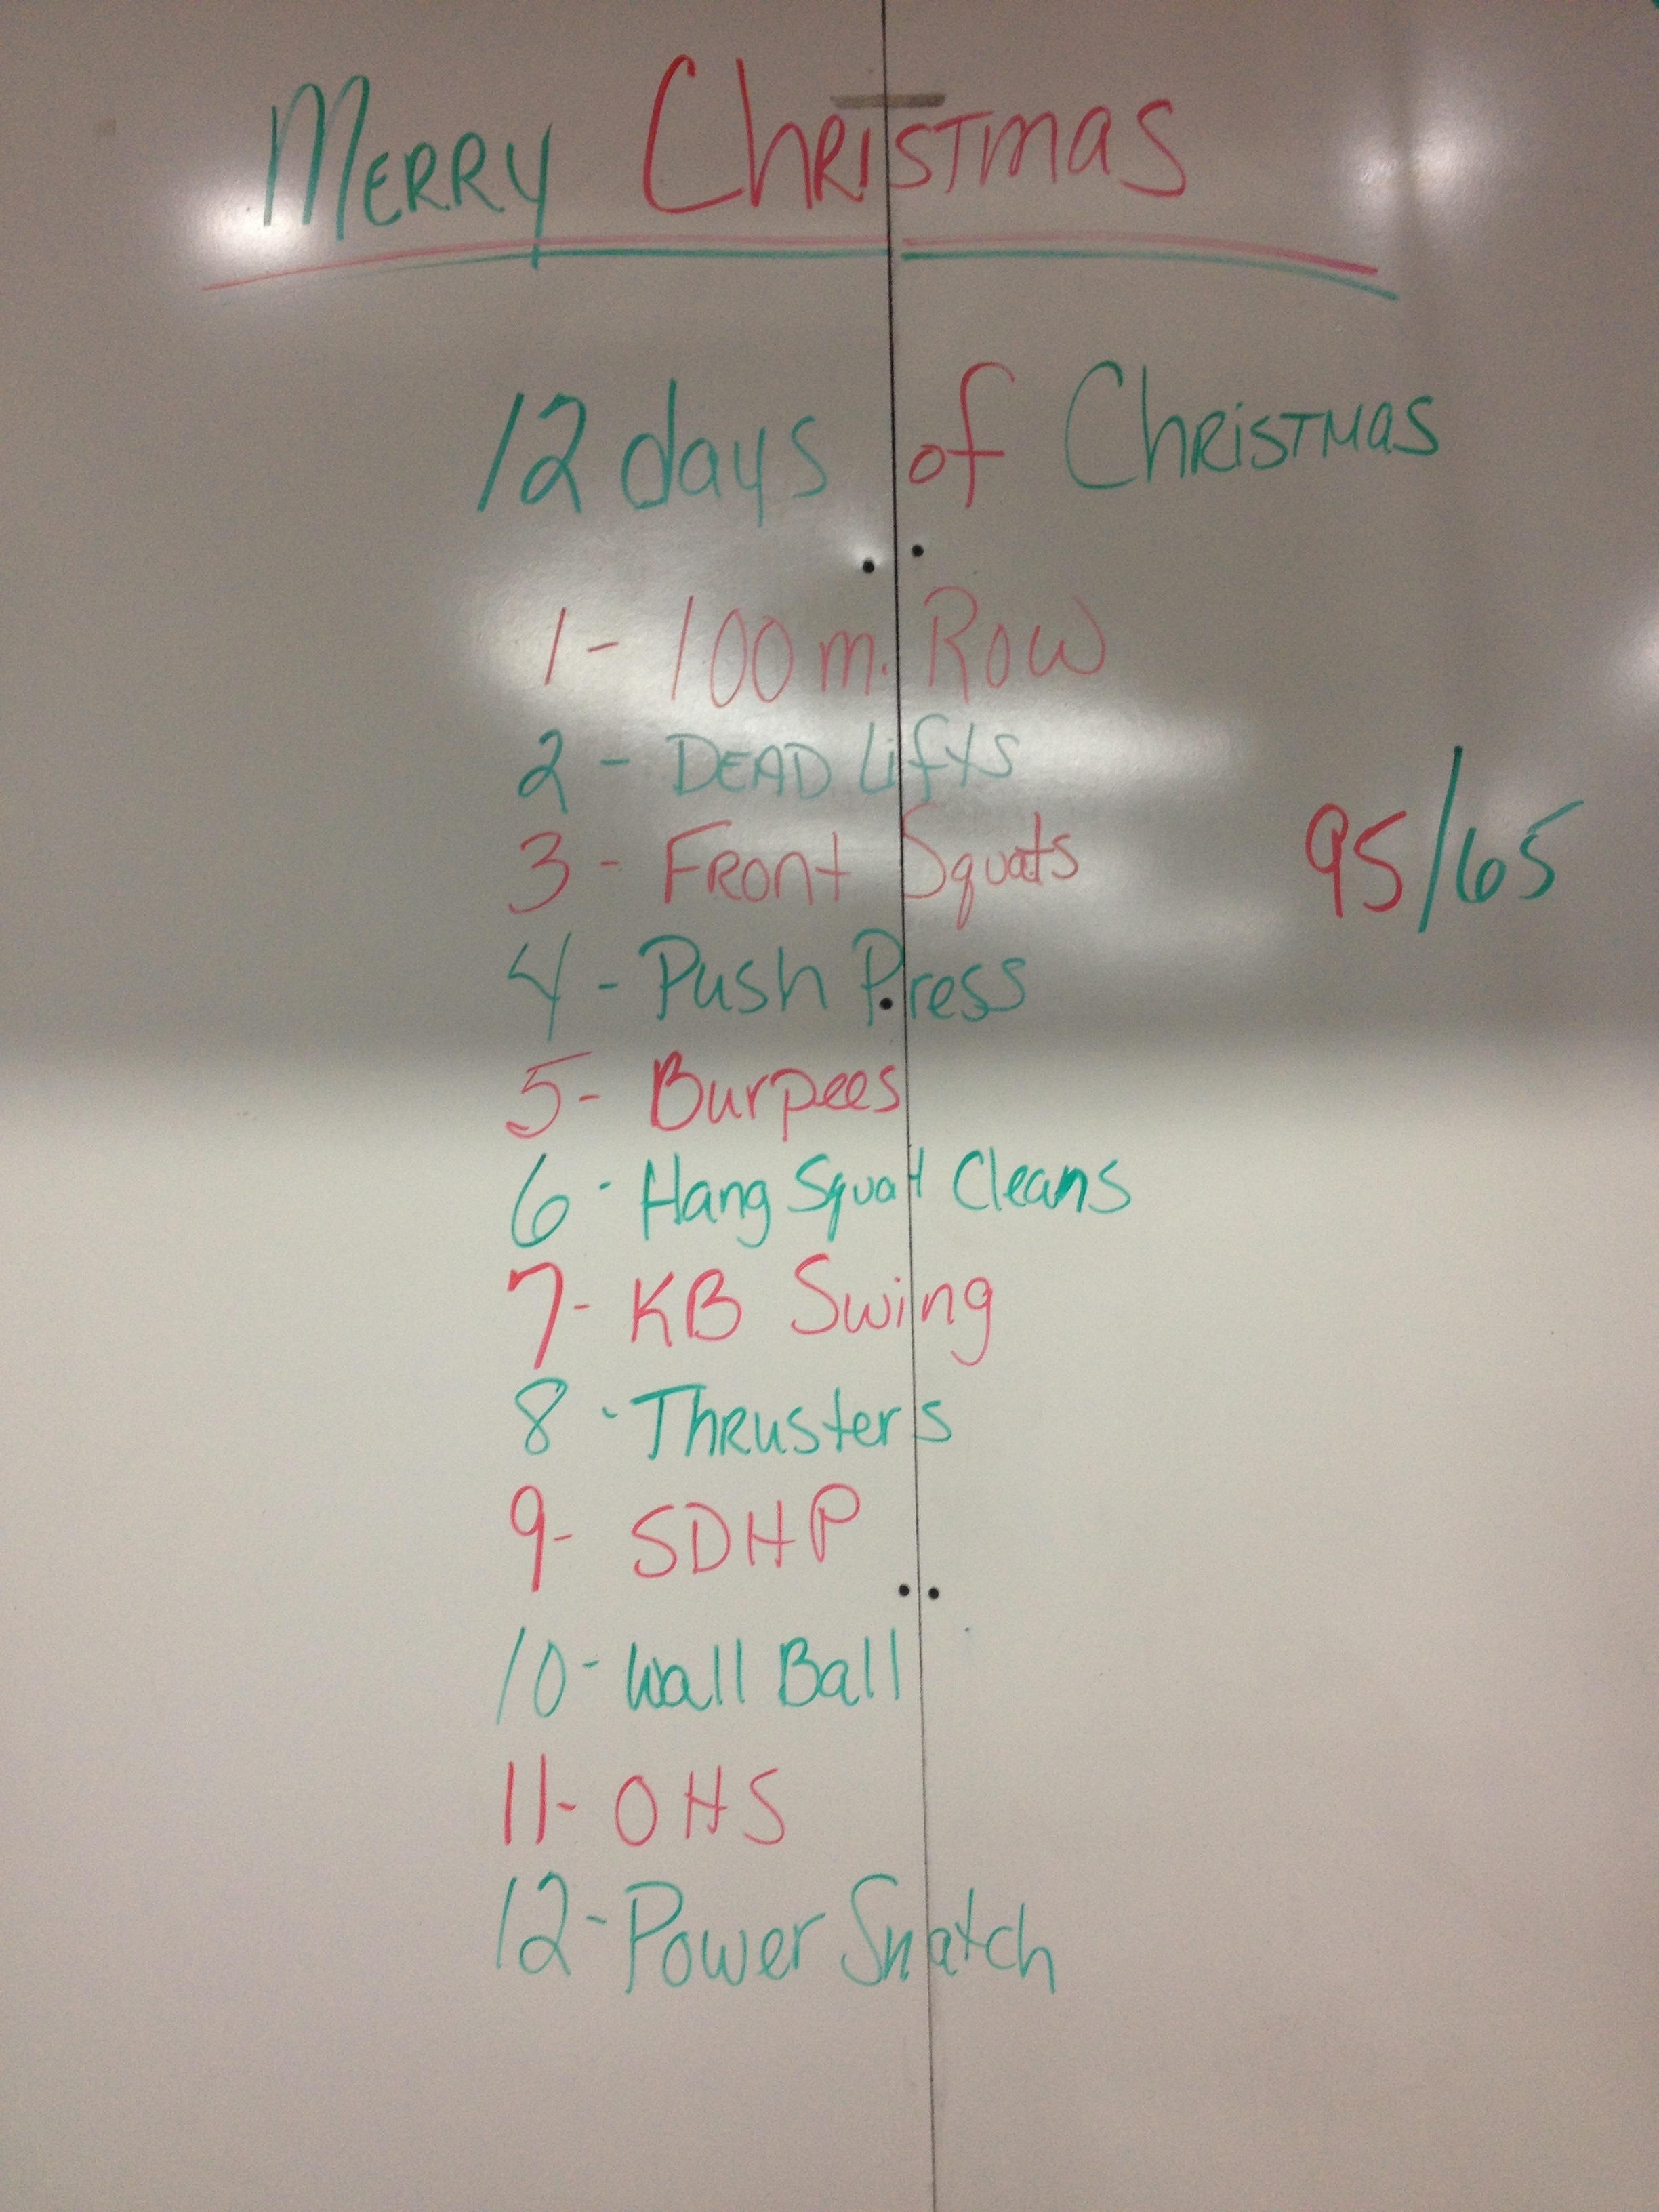 MERRY ChRISTmas
12 days of ChRiSTMas
1- 100 m. Row
2 - DEAD Lifts
3 - FRont Squats
95/65
4 - Push Press
5- Burpees
6 - Hang Squat Cleans
7- KB Swing
8 - ThRusters
9- SDHP
10- Wall Ball
11- OHS
12- Power Snatch